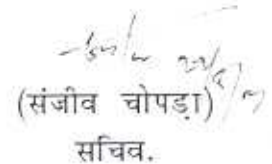 (संजीव चोपड़ा)
सचिव.